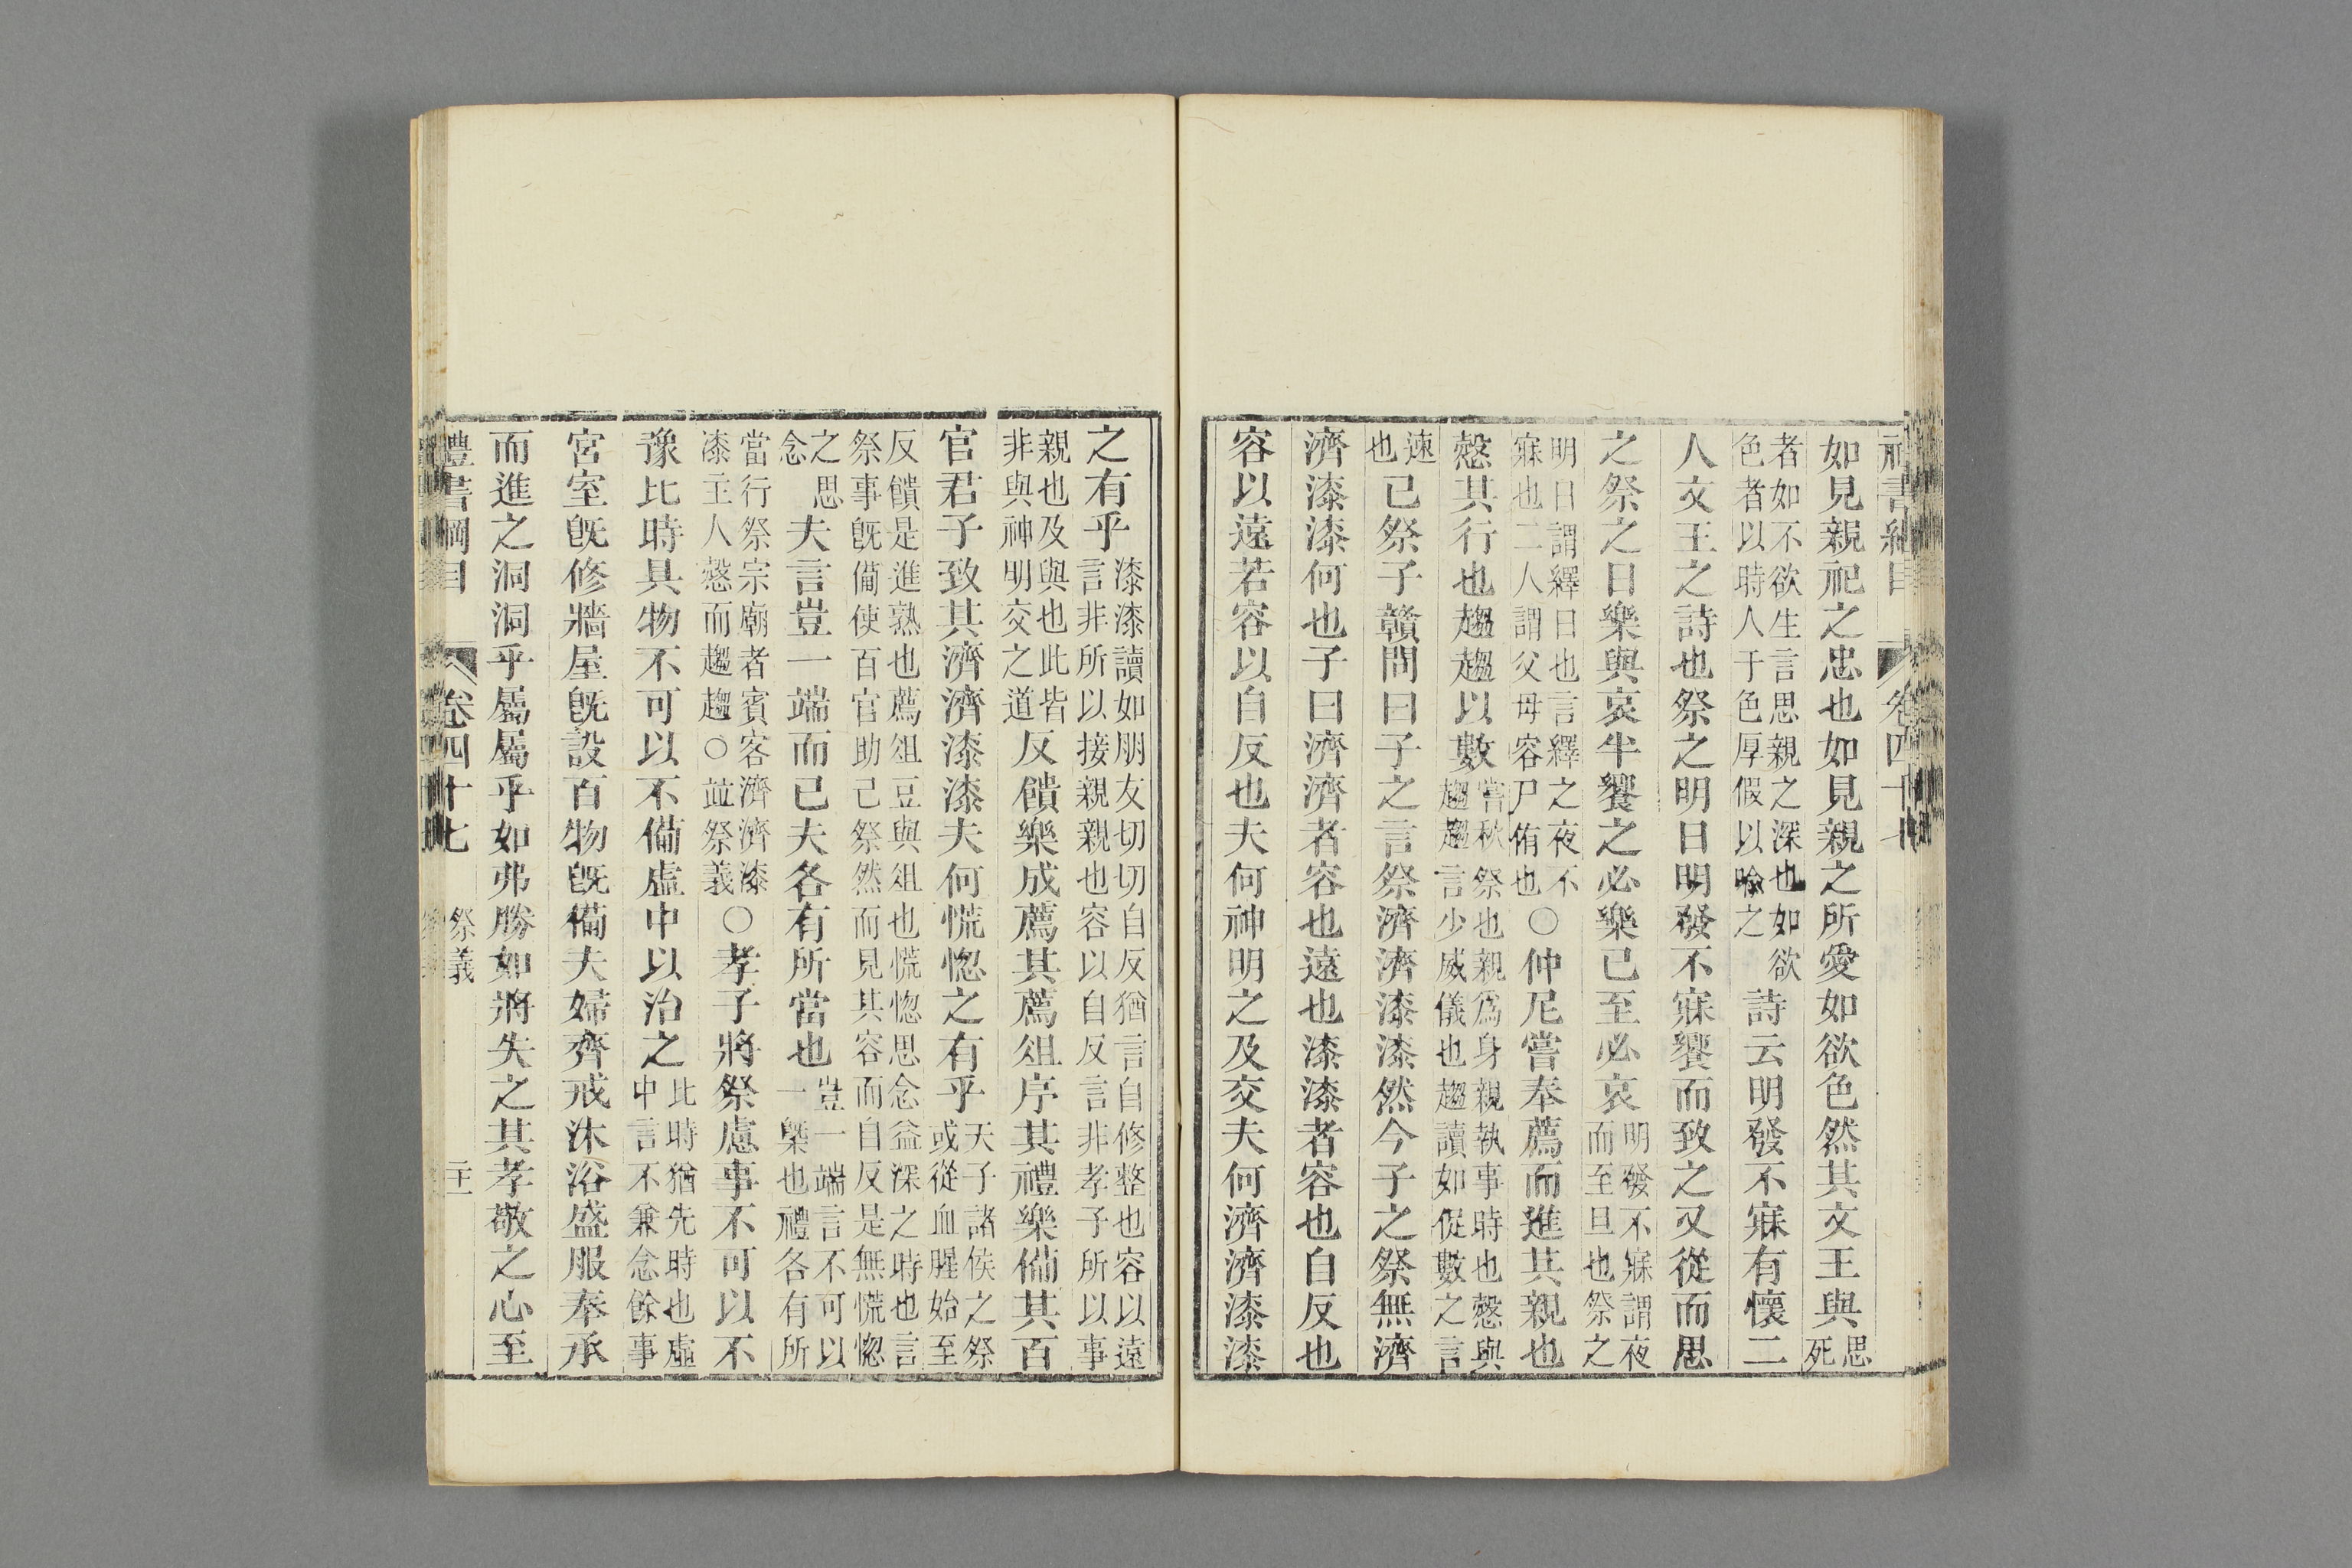 如見親祀之忠也如見親之所愛如欲色然其文王與思死
者如不欲生言思親之深也如欲
色者以時人于色厚假以喻之
詩云明發不寐有懷二
人文王之詩也祭之明日明發不寐饗而致之又從而思
之祭之日樂與哀半饗之必樂已至必哀
明發不寐謂夜
而至旦也祭之
明日謂繹日也言繹之夜不
寐也二人謂父母容尸侑也
○仲尼嘗奉薦而進其親也
慤其行也趨趨以數
嘗秋祭也親爲身親執事時也慤與
趨趨言少威儀也趨讀如促數之言
速
也
已祭子贛問曰子之言祭濟濟漆漆然今子之祭無濟
濟漆漆何也子曰濟濟者容也遠也漆漆者容也自反也
容以遠若容以自反也夫何神明之及交夫何濟濟漆漆
之有乎
漆漆讀如朋友切切自反猶言自修整也容以遠
言非所以接親親也容以自反言非孝子所以事
親也及與也此皆
非與神明交之道
反饋樂成薦其薦俎序其禮樂備其百
官君子致其濟濟漆漆夫何慌惚之有乎
天子諸侯之祭
或從血腥始至
反饋是進熟也薦俎豆與俎也慌惚思念益深之時也言
祭事旣備使百官助己祭然而見其容而自反是無慌惚
之思
念
夫言豈一端而已夫各有所當也
豈一端言不可以
一槩也禮各有所
當行祭宗廟者賓客濟濟漆
漆主人慤而趨趨○並祭義
○孝子將祭慮事不可以不
豫比時具物不可以不備虛中以治之
比時猶先時也虛
中言不兼念餘事
宮室旣修牆屋旣設百物旣備夫婦齊戒沐浴盛服奉承
而進之洞洞乎屬屬乎如弗勝如將失之其孝敬之心至
禮書綱目 卷四十七 祭義